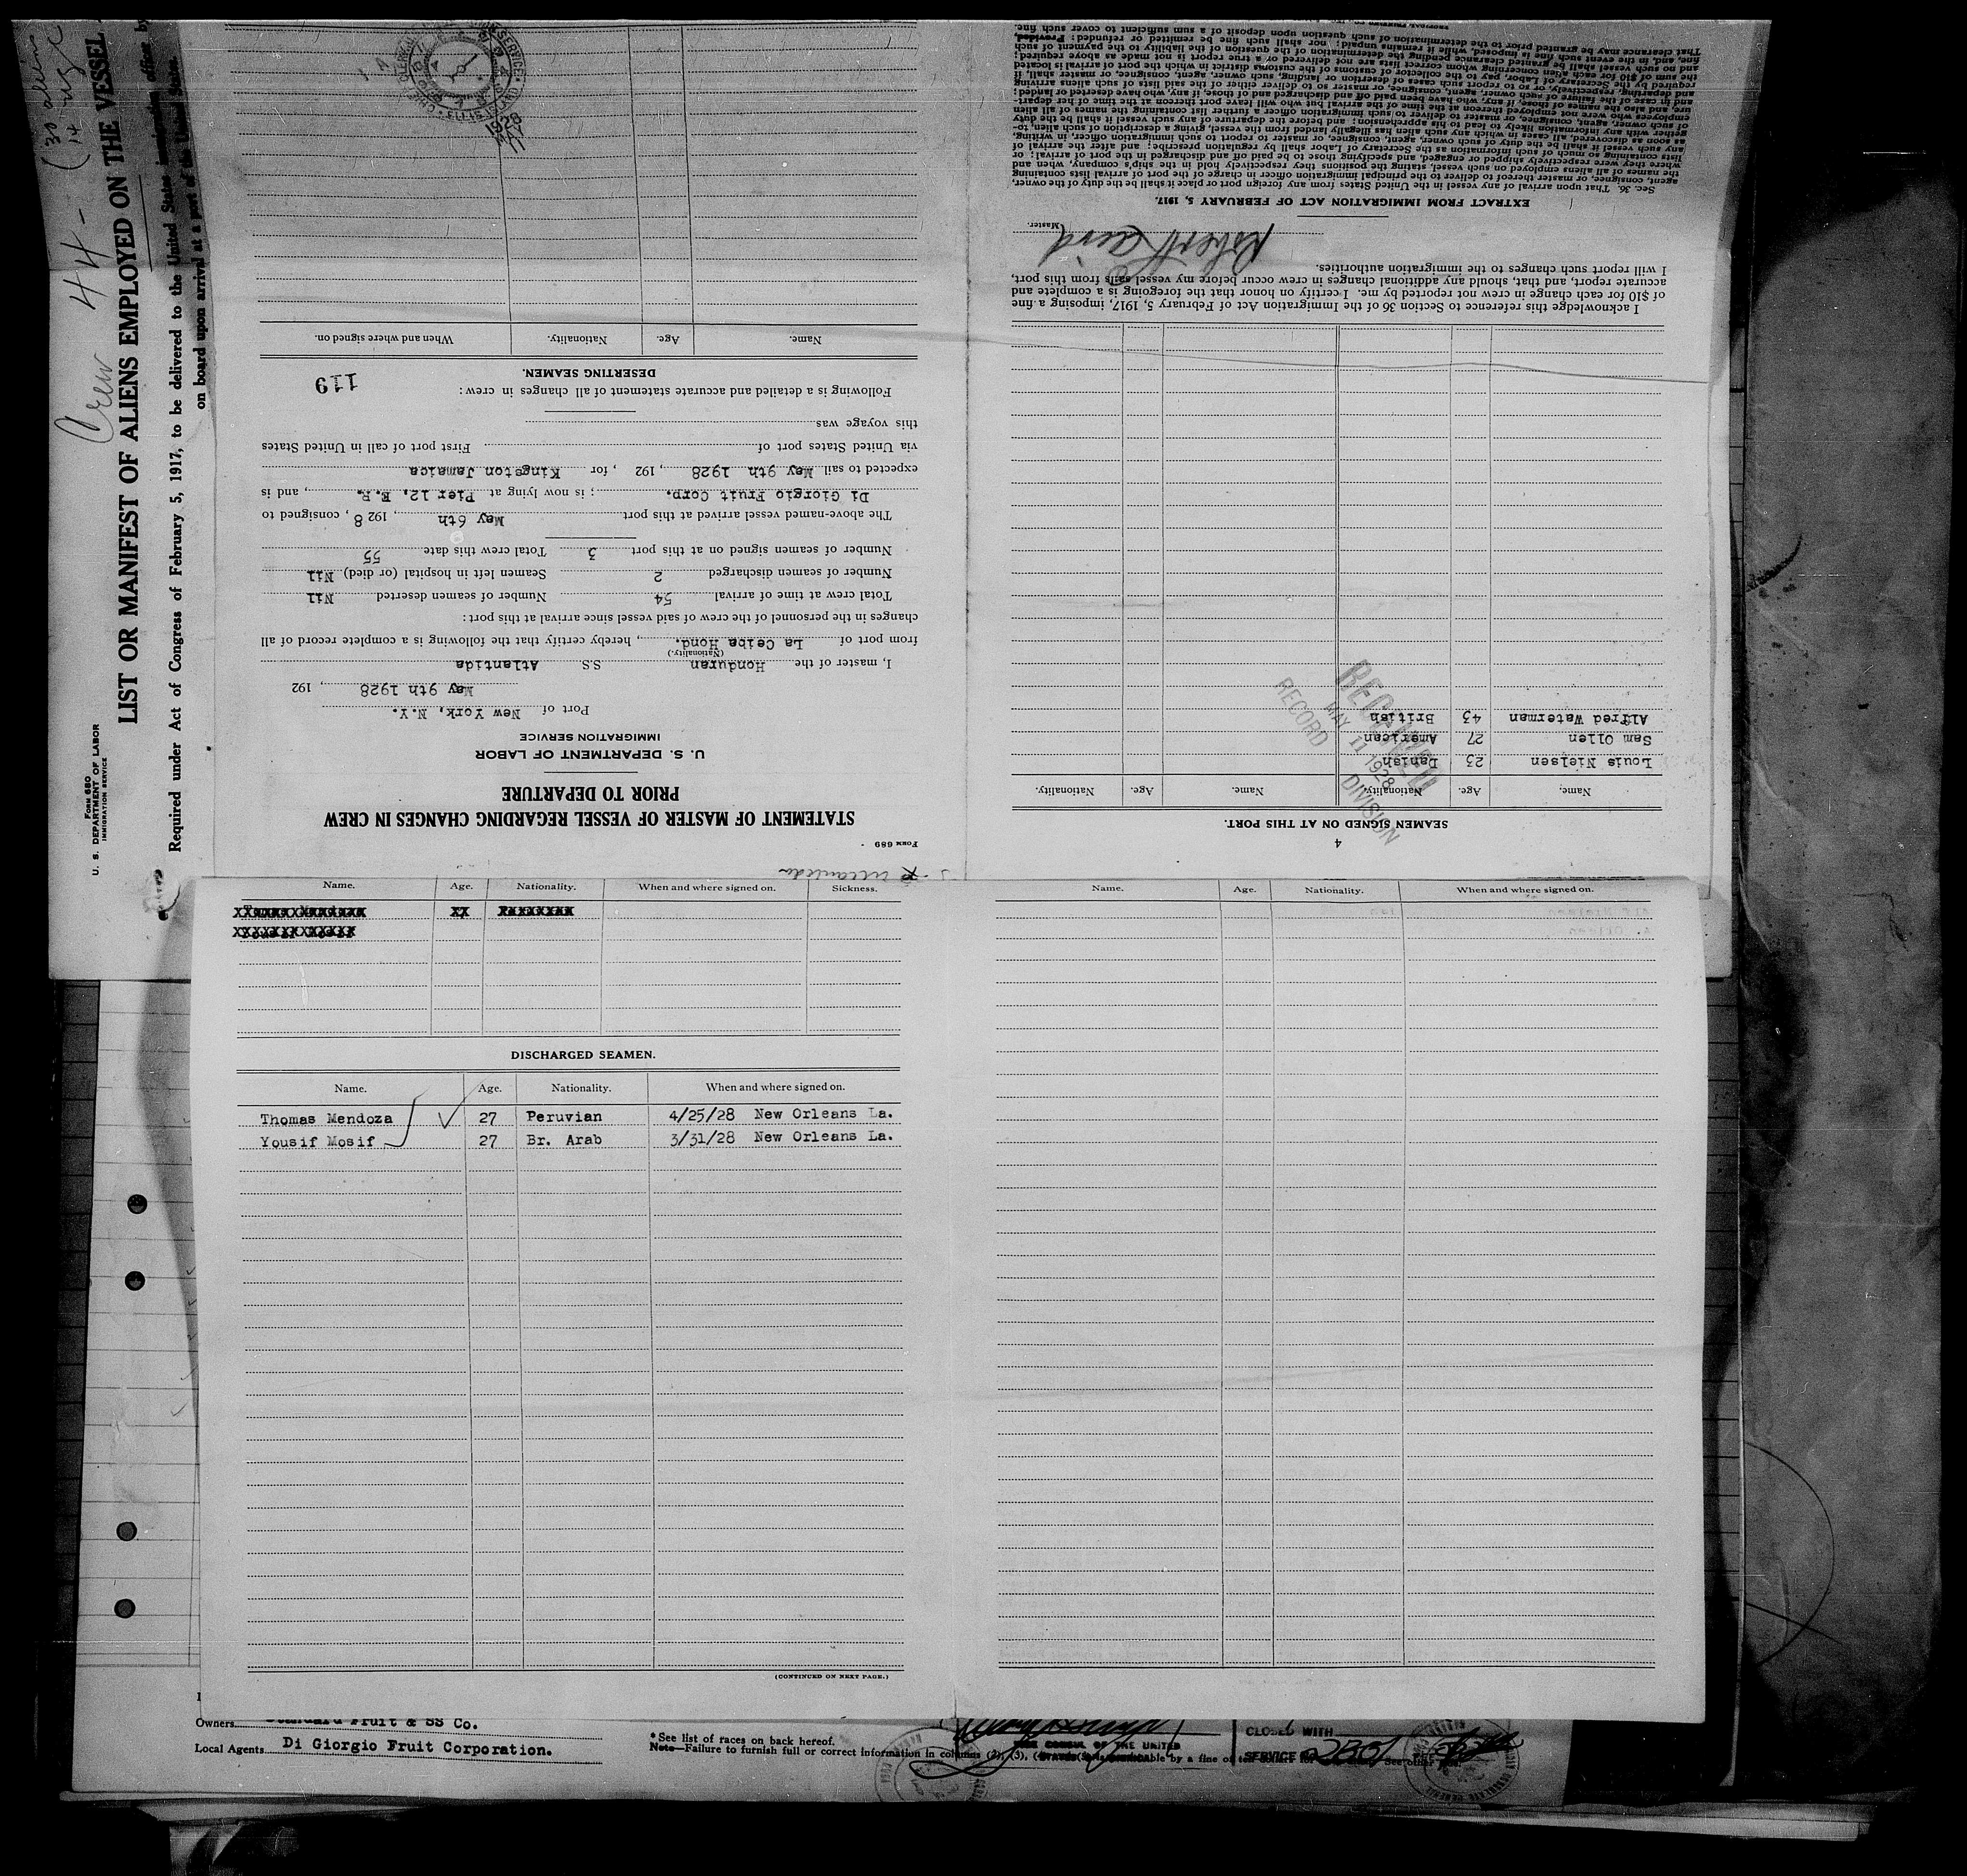 Crew 44 - (30 aliens
14
FORM 680
U. S. DEPARTMENT OF LABOR
IMMIGRATION SERVICE
LIST OR MANIFEST OF ALIENS EMPLOYED ON THE VESSEL
Required under Act of Congress of February 5, 1917, to be delivered to the United States immigration officer by
on board upon arrival at a port of the United States.
FORM 689
STATEMENT OF MASTER OF VESSEL REGARDING CHANGES IN CREW
PRIOR TO DEPARTURE
U. S. DEPARTMENT OF LABOR
IMMIGRATION SERVICE
Port of New York, N.Y.
May 9th 1928, 192
I, master of the Honduran S.S. Atlantida
(Nationality.)
from port of La Ceiba Hond., hereby certify that the following is a complete record of all
changes in the personnel of the crew of said vessel since arrival at this port:
Total crew at time of arrival 54 Number of seamen deserted Nil
Number of seamen discharged 2 Seamen left in hospital (or died) Nil
Number of seamen signed on at this port 3 Total crew this date 55
The above-named vessel arrived at this port May 6th, 192 8, consigned to
Di Giorgio Fruit Corp. ; is now lying at Pier 12, E.R., and is
expected to sail May 9th 1928, 192 , for Kingston Jamaica
via United States port of First port of call in United States
this voyage was
Following is a detailed and accurate statement of all changes in crew:
119
DESERTING SEAMEN.
Name. Age. Nationality. When and where signed on.
1928
4
SEAMEN SIGNED ON AT THIS PORT.
Name. Age. Nationality. Name. Age. Nationality.
Louis Nielsen 23 Danish
Sam Ollen 27 American
Alfred Waterman 43 British
RECEIVED
MAY 11 1928
RECORD DIVISION
I acknowledge this reference to Section 36 of the Immigration Act of February 5, 1917, imposing a fine
of $10 for each change in crew not reported by me. I certify on honor that the foregoing is a complete and
accurate report, and that, should any additional changes in crew occur before my vessel sails from this port,
I will report such changes to the immigration authorities.
Master.
EXTRACT FROM IMMIGRATION ACT OF FEBRUARY 5, 1917.
Sec. 36. That upon arrival of any vessel in the United States from any foreign port or place it shall be the duty of the owner,
agent, consignee, or master thereof to deliver to the principal immigration officer in charge of the port of arrival lists containing
the names of all aliens employed on such vessel, stating the positions they respectively hold in the ship's company, when and
where they were respectively shipped or engaged, and specifying those to be paid off and discharged in the port of arrival; or
lists containing so much of such information as the Secretary of Labor shall by regulation prescribe; and after the arrival of
any such vessel it shall be the duty of such owner, agent, consignee, or master to report to such immigration officer, in writing,
as soon as discovered, all cases in which any such alien has illegally landed from the vessel, giving a description of such alien, to-
gether with any information likely to lead to his apprehension; and before the departure of any such vessel it shall be the duty
of such owner, agent, consignee, or master to deliver to such immigration officer a further list containing the names of all alien
employees who were not employed thereon at the time of the arrival but who will leave port thereon at the time of her depart-
ure, and also the names of those, if any, who have been paid off and discharged, and of those, if any, who have deserted or landed;
and in case of the failure of such owner, agent, consignee, or master so to deliver either of the said lists of such aliens arriving
and departing, respectively, or so to report such cases of desertion or landing, such owner, agent, consignee, or master shall, if
required by the Secretary of Labor, pay to the collector of customs of the customs district in which the port of arrival is located
the sum of $10 for each alien concerning whom correct lists are not delivered or a true report is not made as above required;
and no such vessel shall be granted clearance pending the determination of the question of the liability to the payment of such
fine, and, in the event such fine is imposed, while it remains unpaid; nor shall such fine be remitted or refunded: Provided,
That clearance may be granted prior to the determination of such question upon deposit of a sum sufficient to cover such fine.
Name. Age. Nationality. When and where signed on. Sickness.
DISCHARGED SEAMEN.
Name. Age. Nationality. When and where signed on.
Thomas Mendoza 27 Peruvian 4/25/28 New Orleans La.
Yousif Mosif 27 Br. Arab 3/31/28 New Orleans La.
(CONTINUED ON NEXT PAGE.)
Name. Age. Nationality. When and where signed on.
Owners Standard Fruit & SS Co.
Local Agents Di Giorgio Fruit Corporation.
* See list of races on back hereof.
Note—Failure to furnish full or correct information in columns (2), (3),
CLOSED WITH
SERVICE No 2801